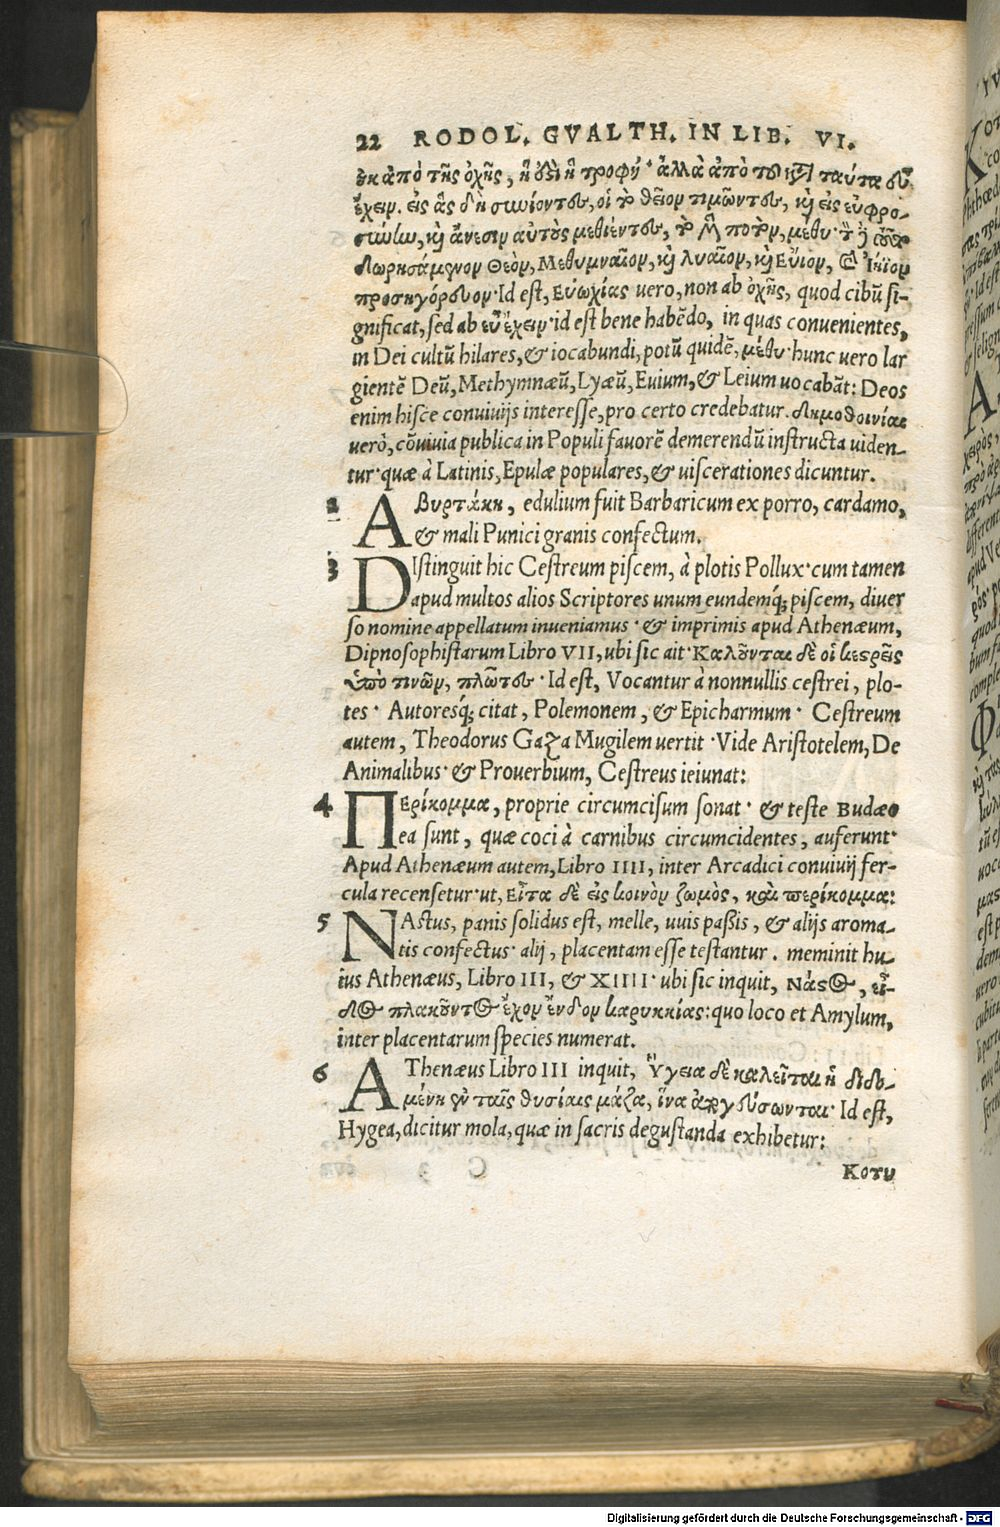 22 RODOL. GVALTH. IN LIB. VI.
ἐκ ἀπὸ τῆς ὀχῆς, ἥ ὅδὶν ἡ τροφὴ· ἀλλὰ ἀπὸ τοῦ κατὰ ταύτα εὖ
ἔχειν. εἰς ἃς δὴ συνιόντες, οἱ τὸ θεῖον τιμῶντες, καὶ εἰς εὐφρο-
σύνην, καὶ ἄνεσιν αὐτοὺς μεθιέντες, τὸ μὲν ποτὸν, μέθυ· τὸν δὲ τοῦτο
δωρησάμενον θεὸν, Μεθυμναῖον, καὶ λυαῖον, καὶ Εὔϊον, καὶ Ἰήϊον
προσηγόρευον· Id est, Εὐωχίας uero, non ab ὀχῆς, quod cibū si-
gnificat, sed ab εὖ ἔχειν· id est bene habēdo, in quas conuenientes,
in Dei cultū hilares, & iocabundi, potū quidē, μέθυ· hunc uero lar
gientē Deū, Methymnæū, Lyæū, Euium, & Leium uocabāt: Deos
enim hisce conuiuijs interesse, pro certo credebatur. Δημοθοινίας
uerò, cōuiuia publica in Populi fauorē demerendū instructa uiden-
tur· quæ à Latinis, Epulæ populares, & uiscerationes dicuntur.
2 ΑΒυρτάκη, edulium fuit Barbaricum ex porro, cardamo,
& mali Punici granis confectum.
3 DIstinguit hic Cestreum piscem, à plotis Pollux· cum tamen
apud multos alios Scriptores unum eundemq́; piscem, diuer
so nomine appellatum inueniamus· & imprimis apud Athenæum,
Dipnosophistarum Libro VII, ubi sic ait· Καλοῦνται δὲ οἱ κεσρεῖς
ὑπό τινων, πλῶτες· Id est, Vocantur à nonnullis cestrei, plo-
tes· Autoresq́; citat, Polemonem, & Epicharmum· Cestreum
autem, Theodorus Gaza Mugilem uertit· Vide Aristotelem, De
Animalibus· & Prouerbium, Cestreus ieiunat:
4 ΠΕρίκομμα, proprie circumcisum sonat· & teste Budæo
ea sunt, quæ coci à carnibus circumcidentes, auferunt·
Apud Athenæum autem, Libro IIII, inter Arcadici conuiuij fer-
cula recensetur· ut, Εἶτα δὲ εἰς κοινὸν ζωμὸς, καὶ περίκομμα:
5 NAstus, panis solidus est, melle, uuis paßis, & alijs aroma-
tis confectus· alij, placentam esse testantur. meminit hu-
ius Athenæus, Libro III, & XIIII· ubi sic inquit, Νάστος, εἶ-
δος πλακοῦντος ἔχον ἔνδον καρυκκίας: quo loco et Amylum,
inter placentarum species numerat.
6 AThenæus Libro III inquit, Ὕγεια δὲ καλεῖται ἡ διδο-
μένη ἐν ταῖς θυσίαις μάζα, ἵνα ἀπογεύσωνται· Id est,
Hygea, dicitur mola, quæ in sacris degustanda exhibetur:
Κοτυ
Digitalisierung gefördert durch die Deutsche Forschungsgemeinschaft - DFG